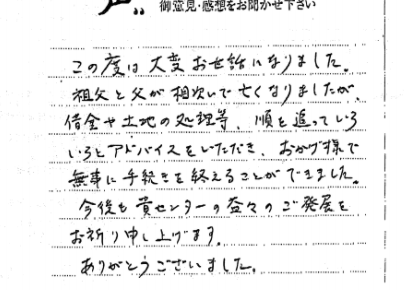 声
御意見・感想をお聞かせ下さい
この度は大変お世話になりました。
祖父と父が相次いで亡くなりましたが、
借金や土地の処理等、順を追っていろ
いろとアドバイスをいただき、おかげ様で
無事に手続きを終えることができました。
今後も貴センターの益々のご発展を
お祈り申し上げます。
ありがとうございました。